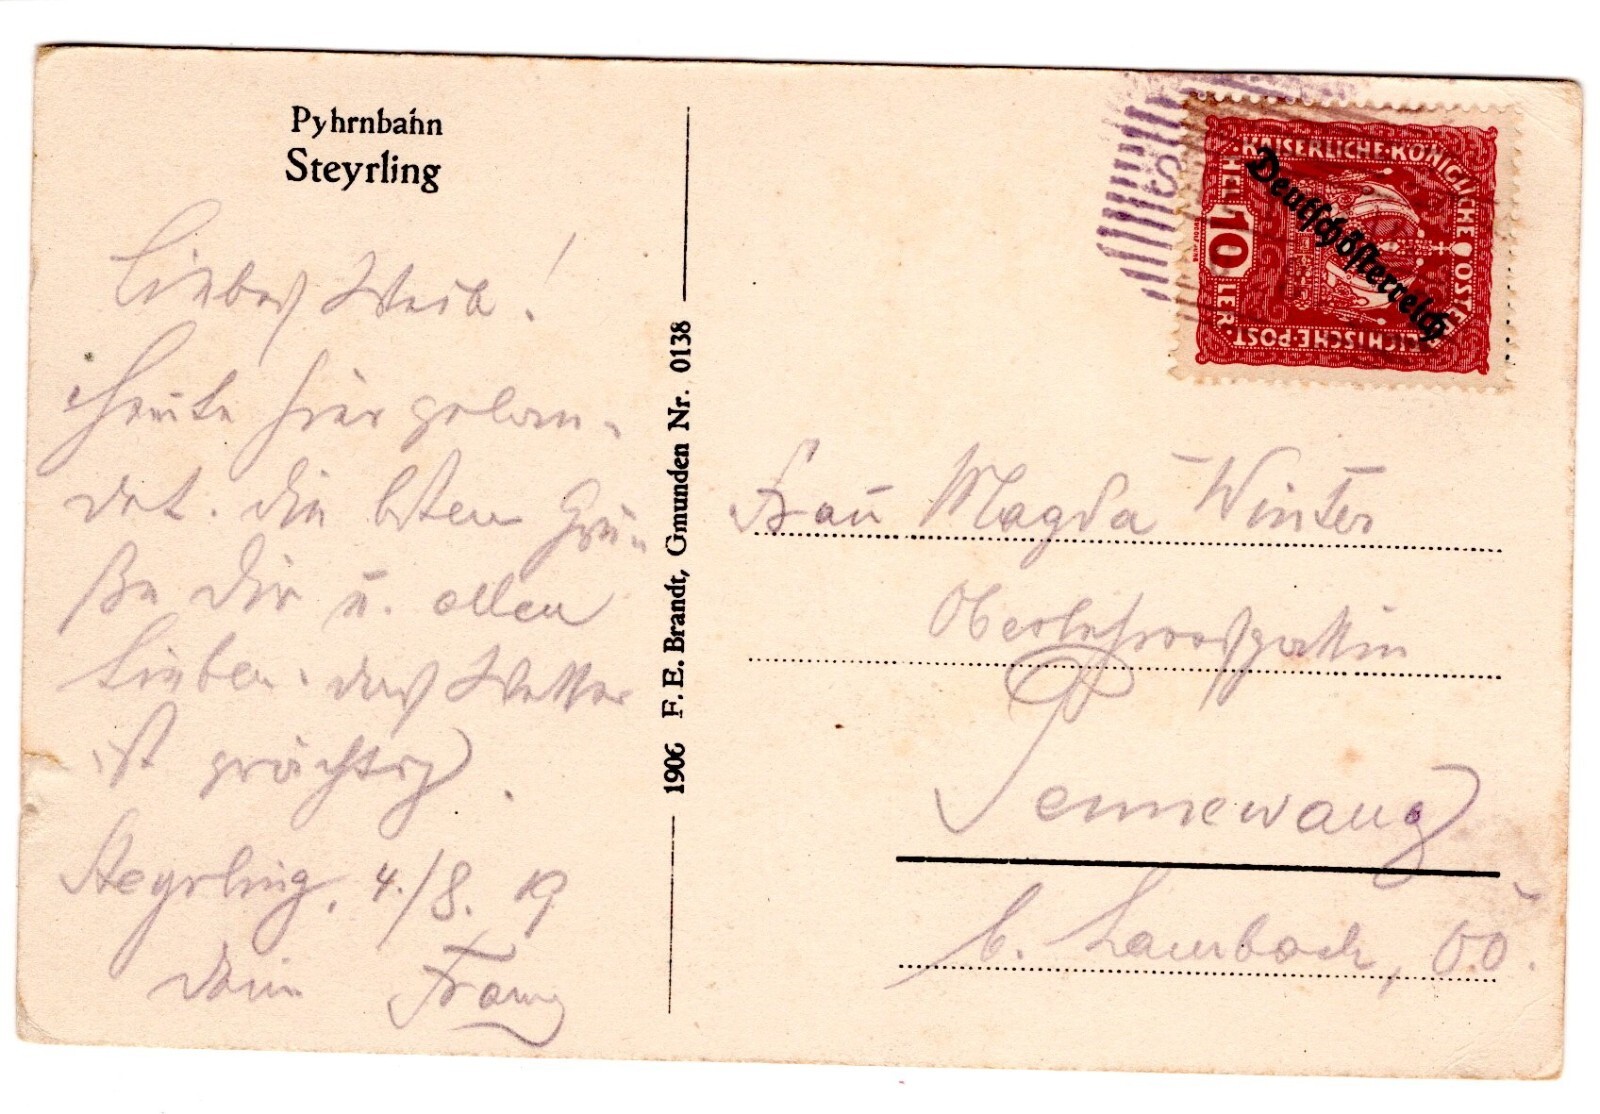 Pyhrnbahn
Steyrling
Liebes Weib!
Heute hier gelan-
det. Die besten Grü-
ße Dir u. allen
Lieben. das Wetter
ist prächtig.
Steyrling, 4./8. 19
Dein Franz
1906 F. E. Brandt, Gmunden Nr. 0138
KAISERLICHE·KÖNIGLICHE ÖSTERREICHISCHE·POST
10
HELLER
Deutschösterreich
Frau Magda Winter
Oberlehrersgattin
Pennewang
b. Lambach, O.Ö.